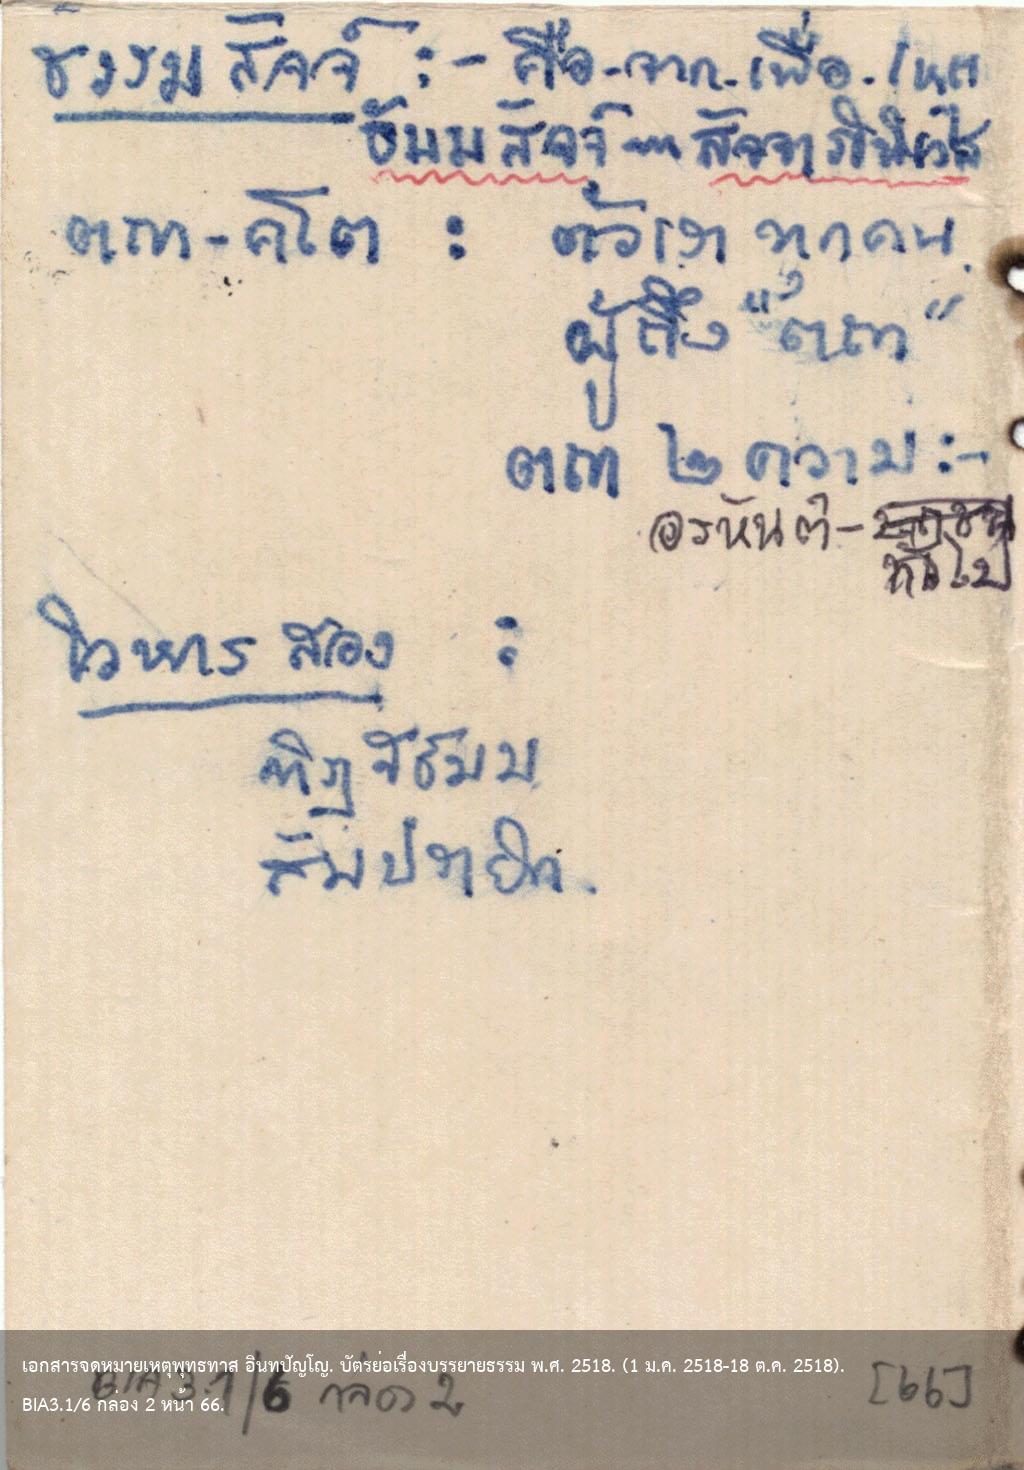 ธรรมสัจจ์ :- คือ-จาก-เพื่อ-โดย
ธัมมสัจจ์ — สัจจาภินิเวส
ตถา-คโต : ตัวเรา ทุกคน
ผู้ถึง "ตถา"
ตถา ๒ ความ :-
อรหันต์ - ทั่วไป
วิหาร สอง :
ทิฏฐิธัมม
สัมปทายิก.
BIA3.1/6 กล่อง 2 [66]
เอกสารจดหมายเหตุพุทธทาส อินทปัญโญ. บัตรย่อเรื่องบรรยายธรรม พ.ศ. 2518. (1 ม.ค. 2518-18 ต.ค. 2518).
BIA3.1/6 กล่อง 2 หน้า 66.